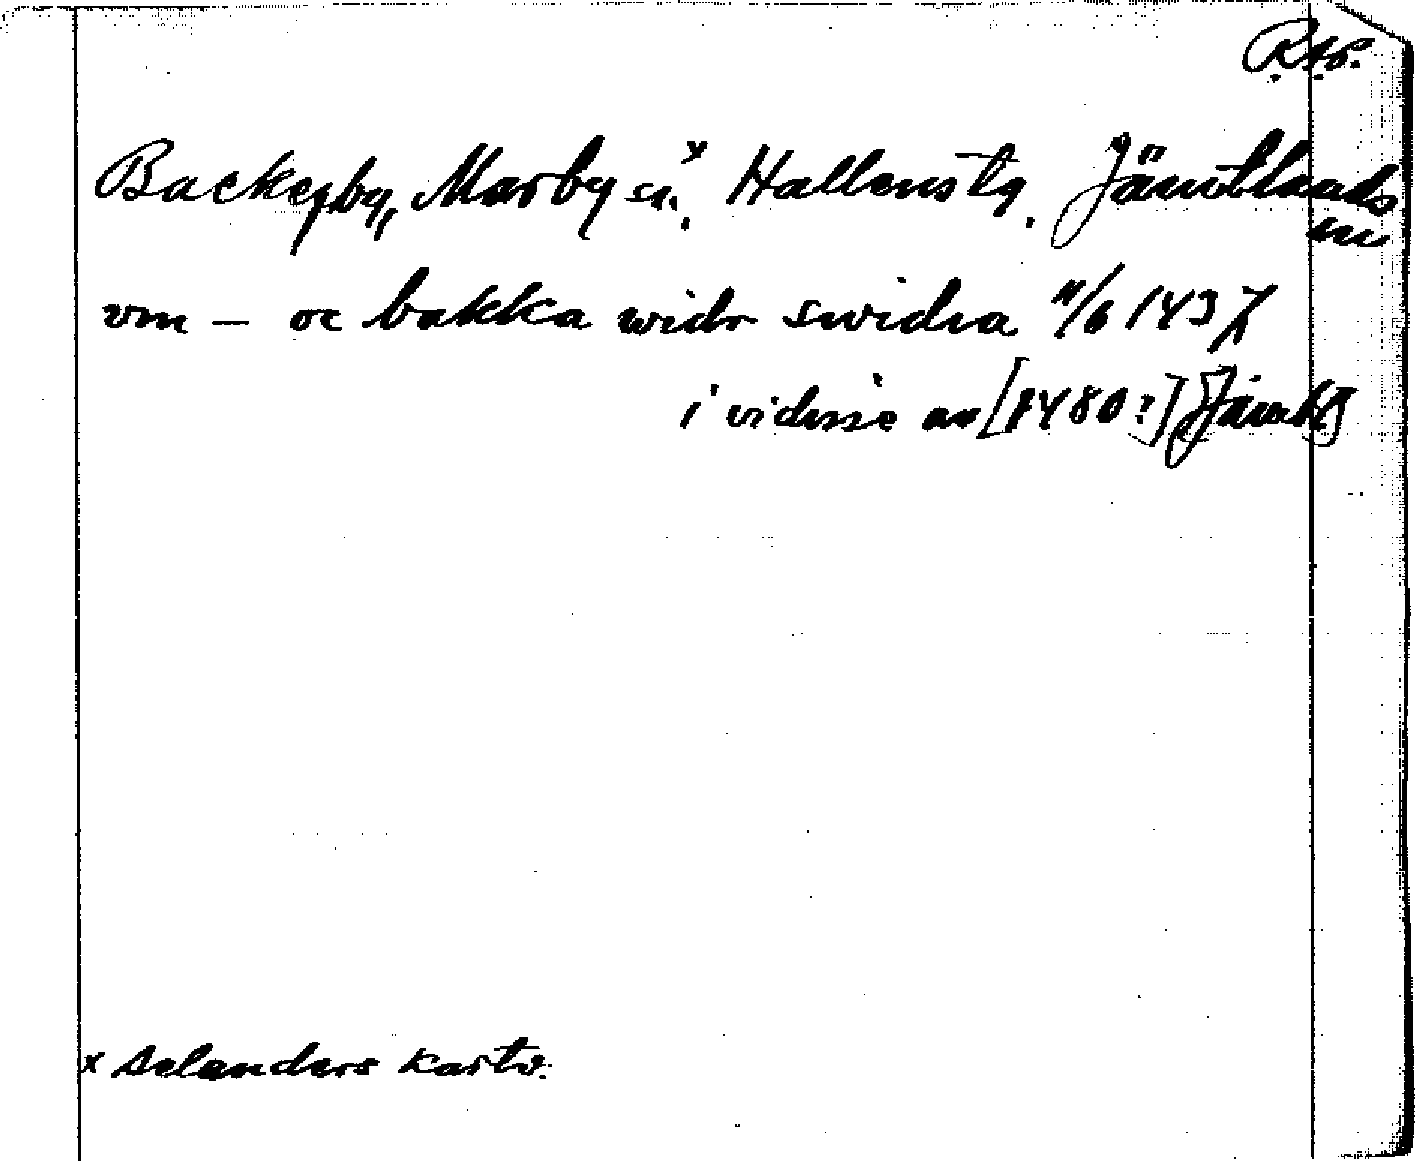 R.A.P.
Backeby, Marby sn.ˣ Hallens tg. Jämtlands
län
vm – oc bakka widr swidia 11/6 1437
i vidisse av [1480?] Jämtl.
x Selanders kartv.